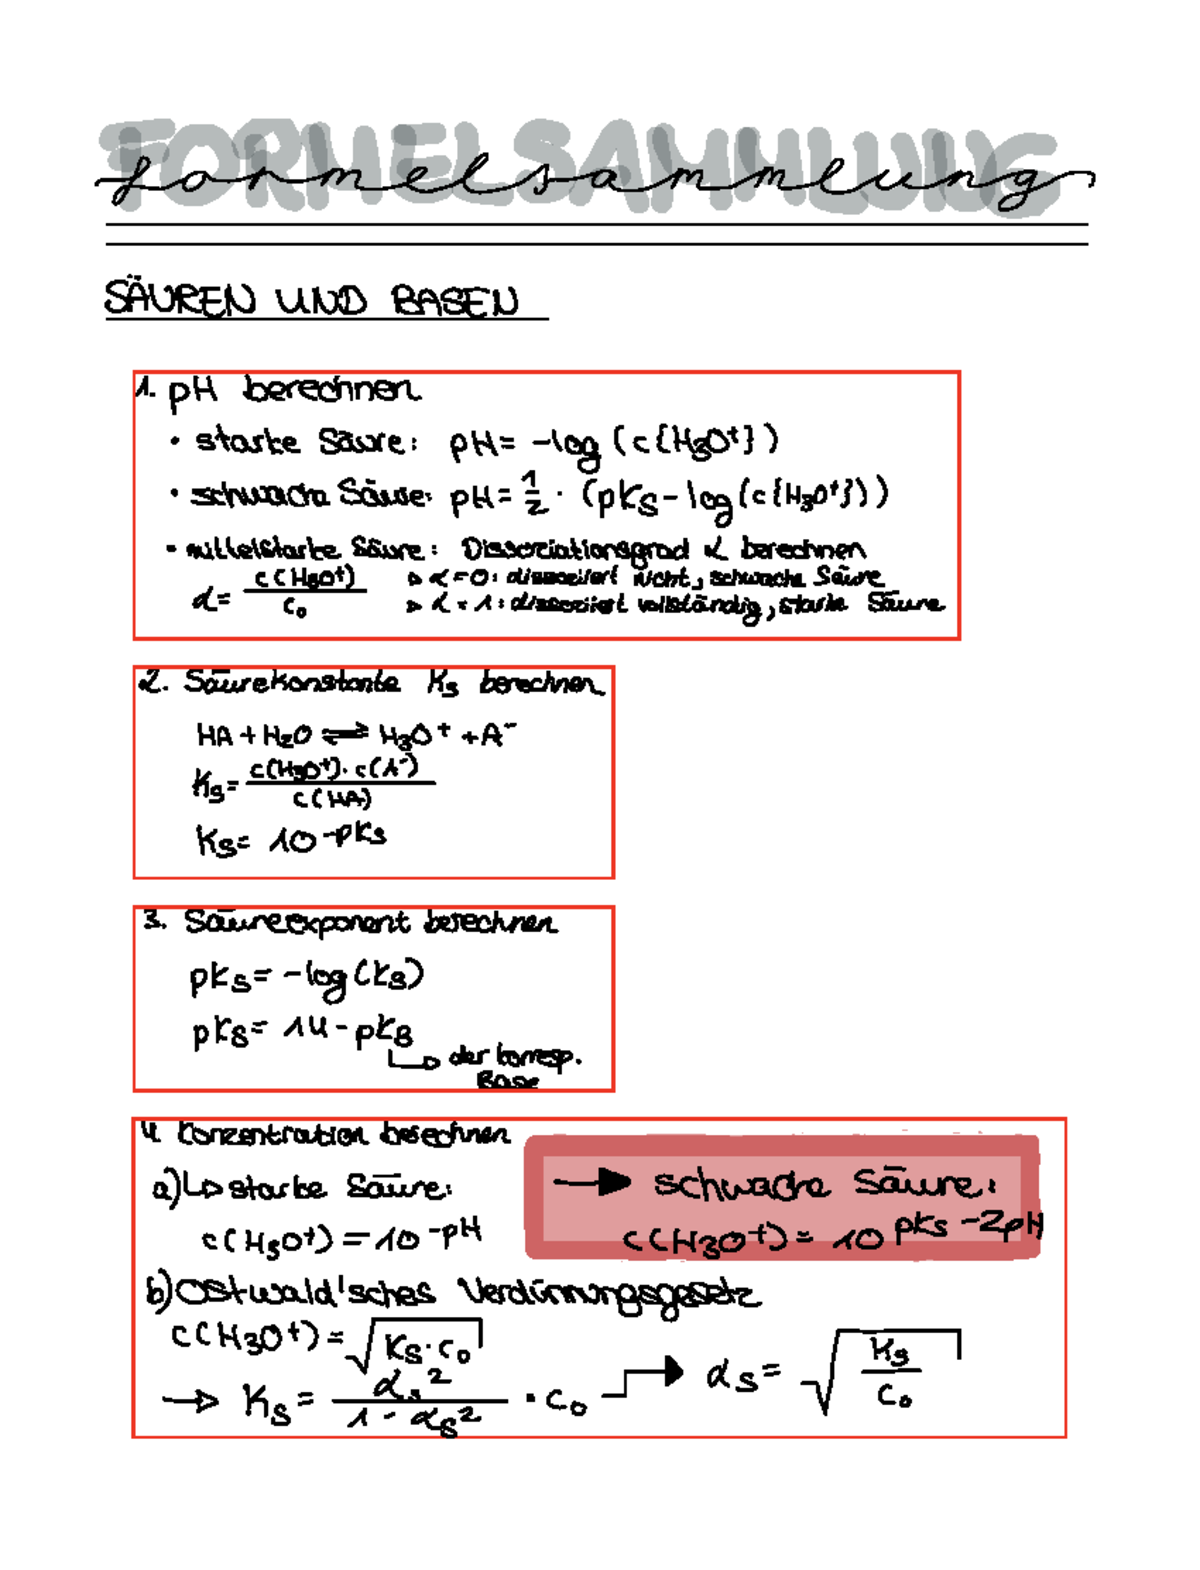 FORMELSAMMLUNG
formelsammlung
SÄUREN UND BASEN
1. pH berechnen
• starke Säure: pH = -log (c{H₃O⁺})
• schwache Säure: pH = 1/2 · (pKs - log(c{H₃O⁺}))
• mittelstarke Säure: Dissoziationsgrad α berechnen
α = c(H₃O⁺) / c₀
▷ α = 0: dissoziiert nicht, schwache Säure
▷ α = 1: dissoziiert vollständig, starke Säure
2. Säurekonstante Ks berechnen
HA + H₂O ⇌ H₃O⁺ + A⁻
Ks = c(H₃O⁺) · c(A⁻) / c(HA)
Ks = 10^-pKs
3. Säureexponent berechnen
pKs = -log(Ks)
pKs = 14 - pKB
↳ der korresp.
Base
4. Konzentration berechnen
a) ↳ starke Säure:
c(H₃O⁺) = 10^-pH
→ schwache Säure:
c(H₃O⁺) = 10^pKs - 2pH
b) Ostwald'sches Verdünnungsgesetz
c(H₃O⁺) = √(Ks · c₀)
→ Ks = αs² / 1 - αs² · c₀ → αs = √(Ks / c₀)